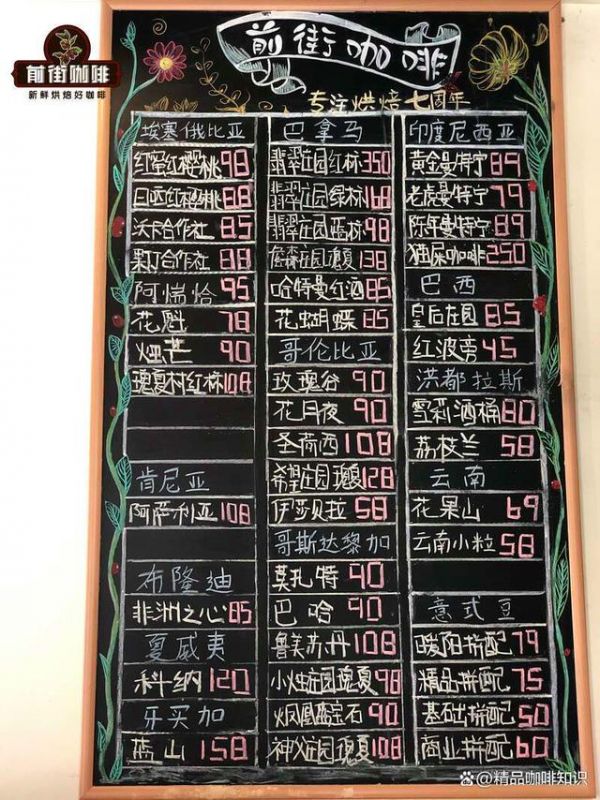 前街咖啡
新鲜烘焙好咖啡
前街咖啡
专注烘焙七周年
埃塞俄比亚
红蜜红樱桃 98
日晒红樱桃 88
沃卡合作社 85
果丁合作社 88
阿瑞恰 95
花魁 78
烛芒 90
瑰夏村红标 108
肯尼亚
阿萨利亚 108
布隆迪
非洲之心 85
夏威夷
科纳 120
牙买加
蓝山 158
巴拿马
翡翠庄园红标 350
翡翠庄园绿标 168
翡翠庄园蓝标 98
詹森庄园瑰夏 138
哈特曼红酒 85
花蝴蝶 85
哥伦比亚
玫瑰谷 90
花月夜 90
圣荷西 108
希望庄园瑰夏 128
伊莎贝拉 58
哥斯达黎加
莫扎特 90
巴哈 90
鲁美苏丹 108
小烛庄园瑰夏 98
火凤凰 宝石 90
神父庄园瑰夏 108
印度尼西亚
黄金曼特宁 89
老虎曼特宁 79
陈年曼特宁 89
猫屎咖啡 250
巴西
皇后庄园 85
红波旁 45
洪都拉斯
雪莉酒桶 80
荔枝兰 58
云南
花果山 69
云南小粒 58
意式豆
暖阳拼配 79
精品拼配 75
基础拼配 50
商业拼配 60
@精品咖啡知识